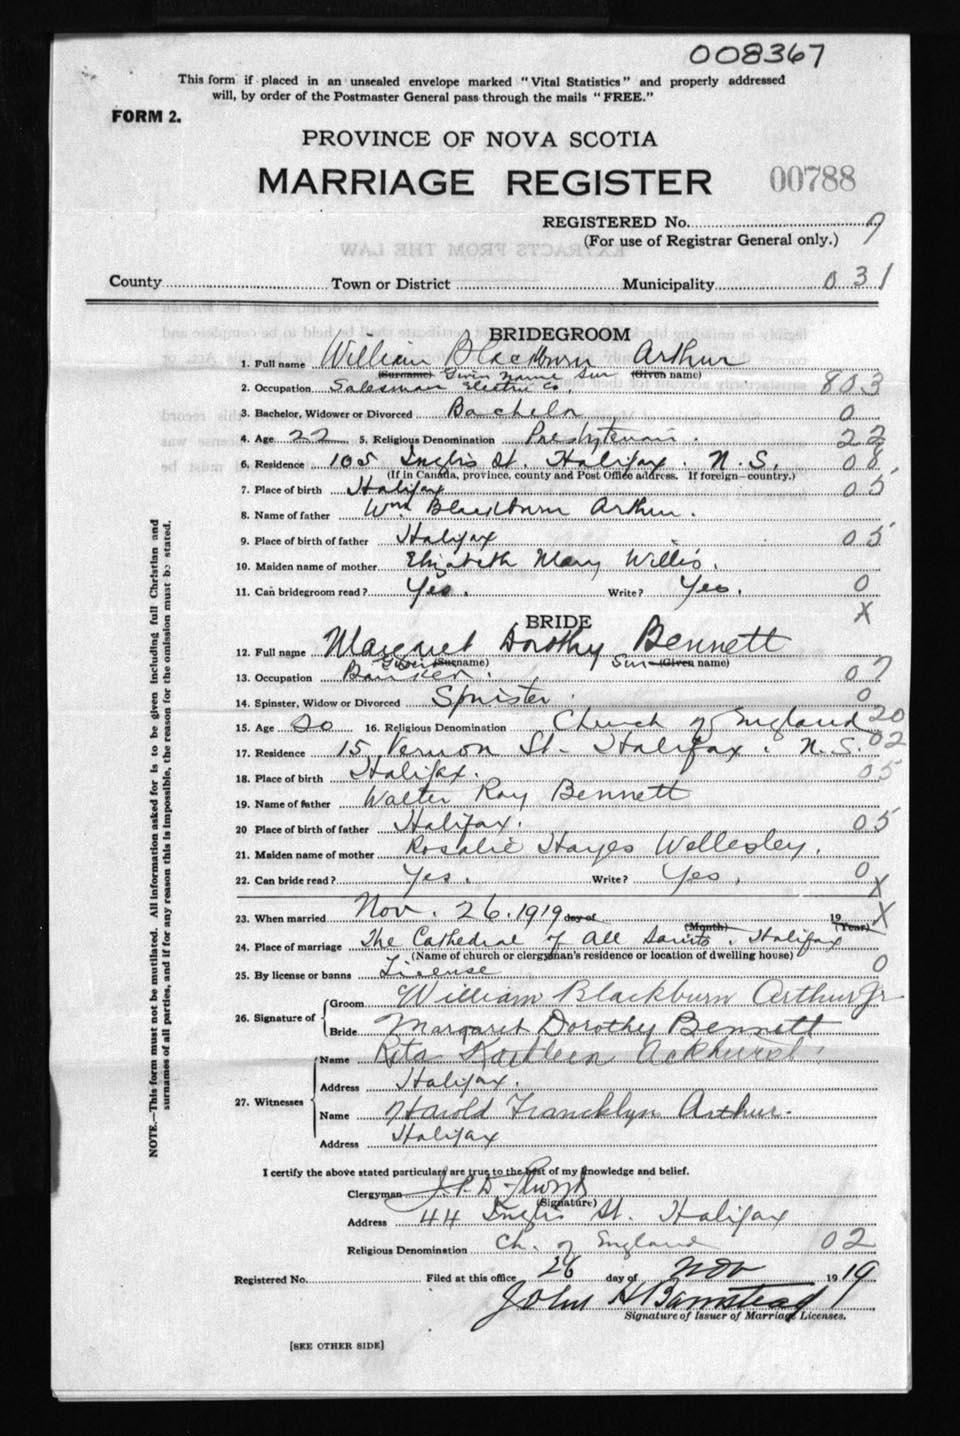 008367
This form if placed in an unsealed envelope marked "Vital Statistics" and properly addressed
will, by order of the Postmaster General pass through the mails "FREE."
FORM 2.
PROVINCE OF NOVA SCOTIA
MARRIAGE REGISTER 00788
REGISTERED No. 7
(For use of Registrar General only.)
County Town or District Municipality 031
BRIDEGROOM
1. Full name William Blackburn Arthur
(Surname) Given name Sur (Given name)
2. Occupation Salesman Electric Co. 803
3. Bachelor, Widower or Divorced Bachelor 0
4. Age 22 5. Religious Denomination Presbyterian. 22
6. Residence 105 Inglis St. Halifax. N.S. 08
(If in Canada, province, county and Post Office address. If foreign—country.)
7. Place of birth Halifax 05
8. Name of father Wm Blackburn Arthur.
9. Place of birth of father Halifax 05
10. Maiden name of mother Elizabeth Mary Willis.
11. Can bridegroom read? Yes. Write? Yes. 0
X
BRIDE
12. Full name Margaret Dorothy Bennett
Given (Surname) Sur (Given name)
13. Occupation Banker. 07
14. Spinster, Widow or Divorced Spinster 0
15. Age 20 16. Religious Denomination Church of England 20
17. Residence 15 Vernon St. Halifax. N.S. 02
18. Place of birth Halifax. 05
19. Name of father Walter Ray Bennett
20 Place of birth of father Halifax. 05
21. Maiden name of mother Rosalie Hayes Wellesley.
22. Can bride read? Yes. Write? Yes. 0 X
23. When married Nov. 26. 1919 day of (Month) 19 (Year) X
24. Place of marriage The Cathedral of All Saints. Halifax
(Name of church or clergyman's residence or location of dwelling house)
25. By license or banns License 0
26. Signature of Groom William Blackburn Arthur Jr
Bride Margaret Dorothy Bennett
27. Witnesses Name Rita Kathleen Ackhurst
Address Halifax.
Name Harold Francklyn Arthur.
Address Halifax
I certify the above stated particulars are true to the best of my knowledge and belief.
Clergyman J.P.D.
(Signature)
Address 44 Inglis St. Halifax
Religious Denomination Ch. of England 02
Registered No. Filed at this office 26 day of Nov 1919
John H Barnstead
Signature of Issuer of Marriage Licenses.
[SEE OTHER SIDE]
NOTE.—This form must not be mutilated. All information asked for is to be given including full Christian and
surnames of all parties, and if for any reason this is impossible, the reason for the omission must be stated.